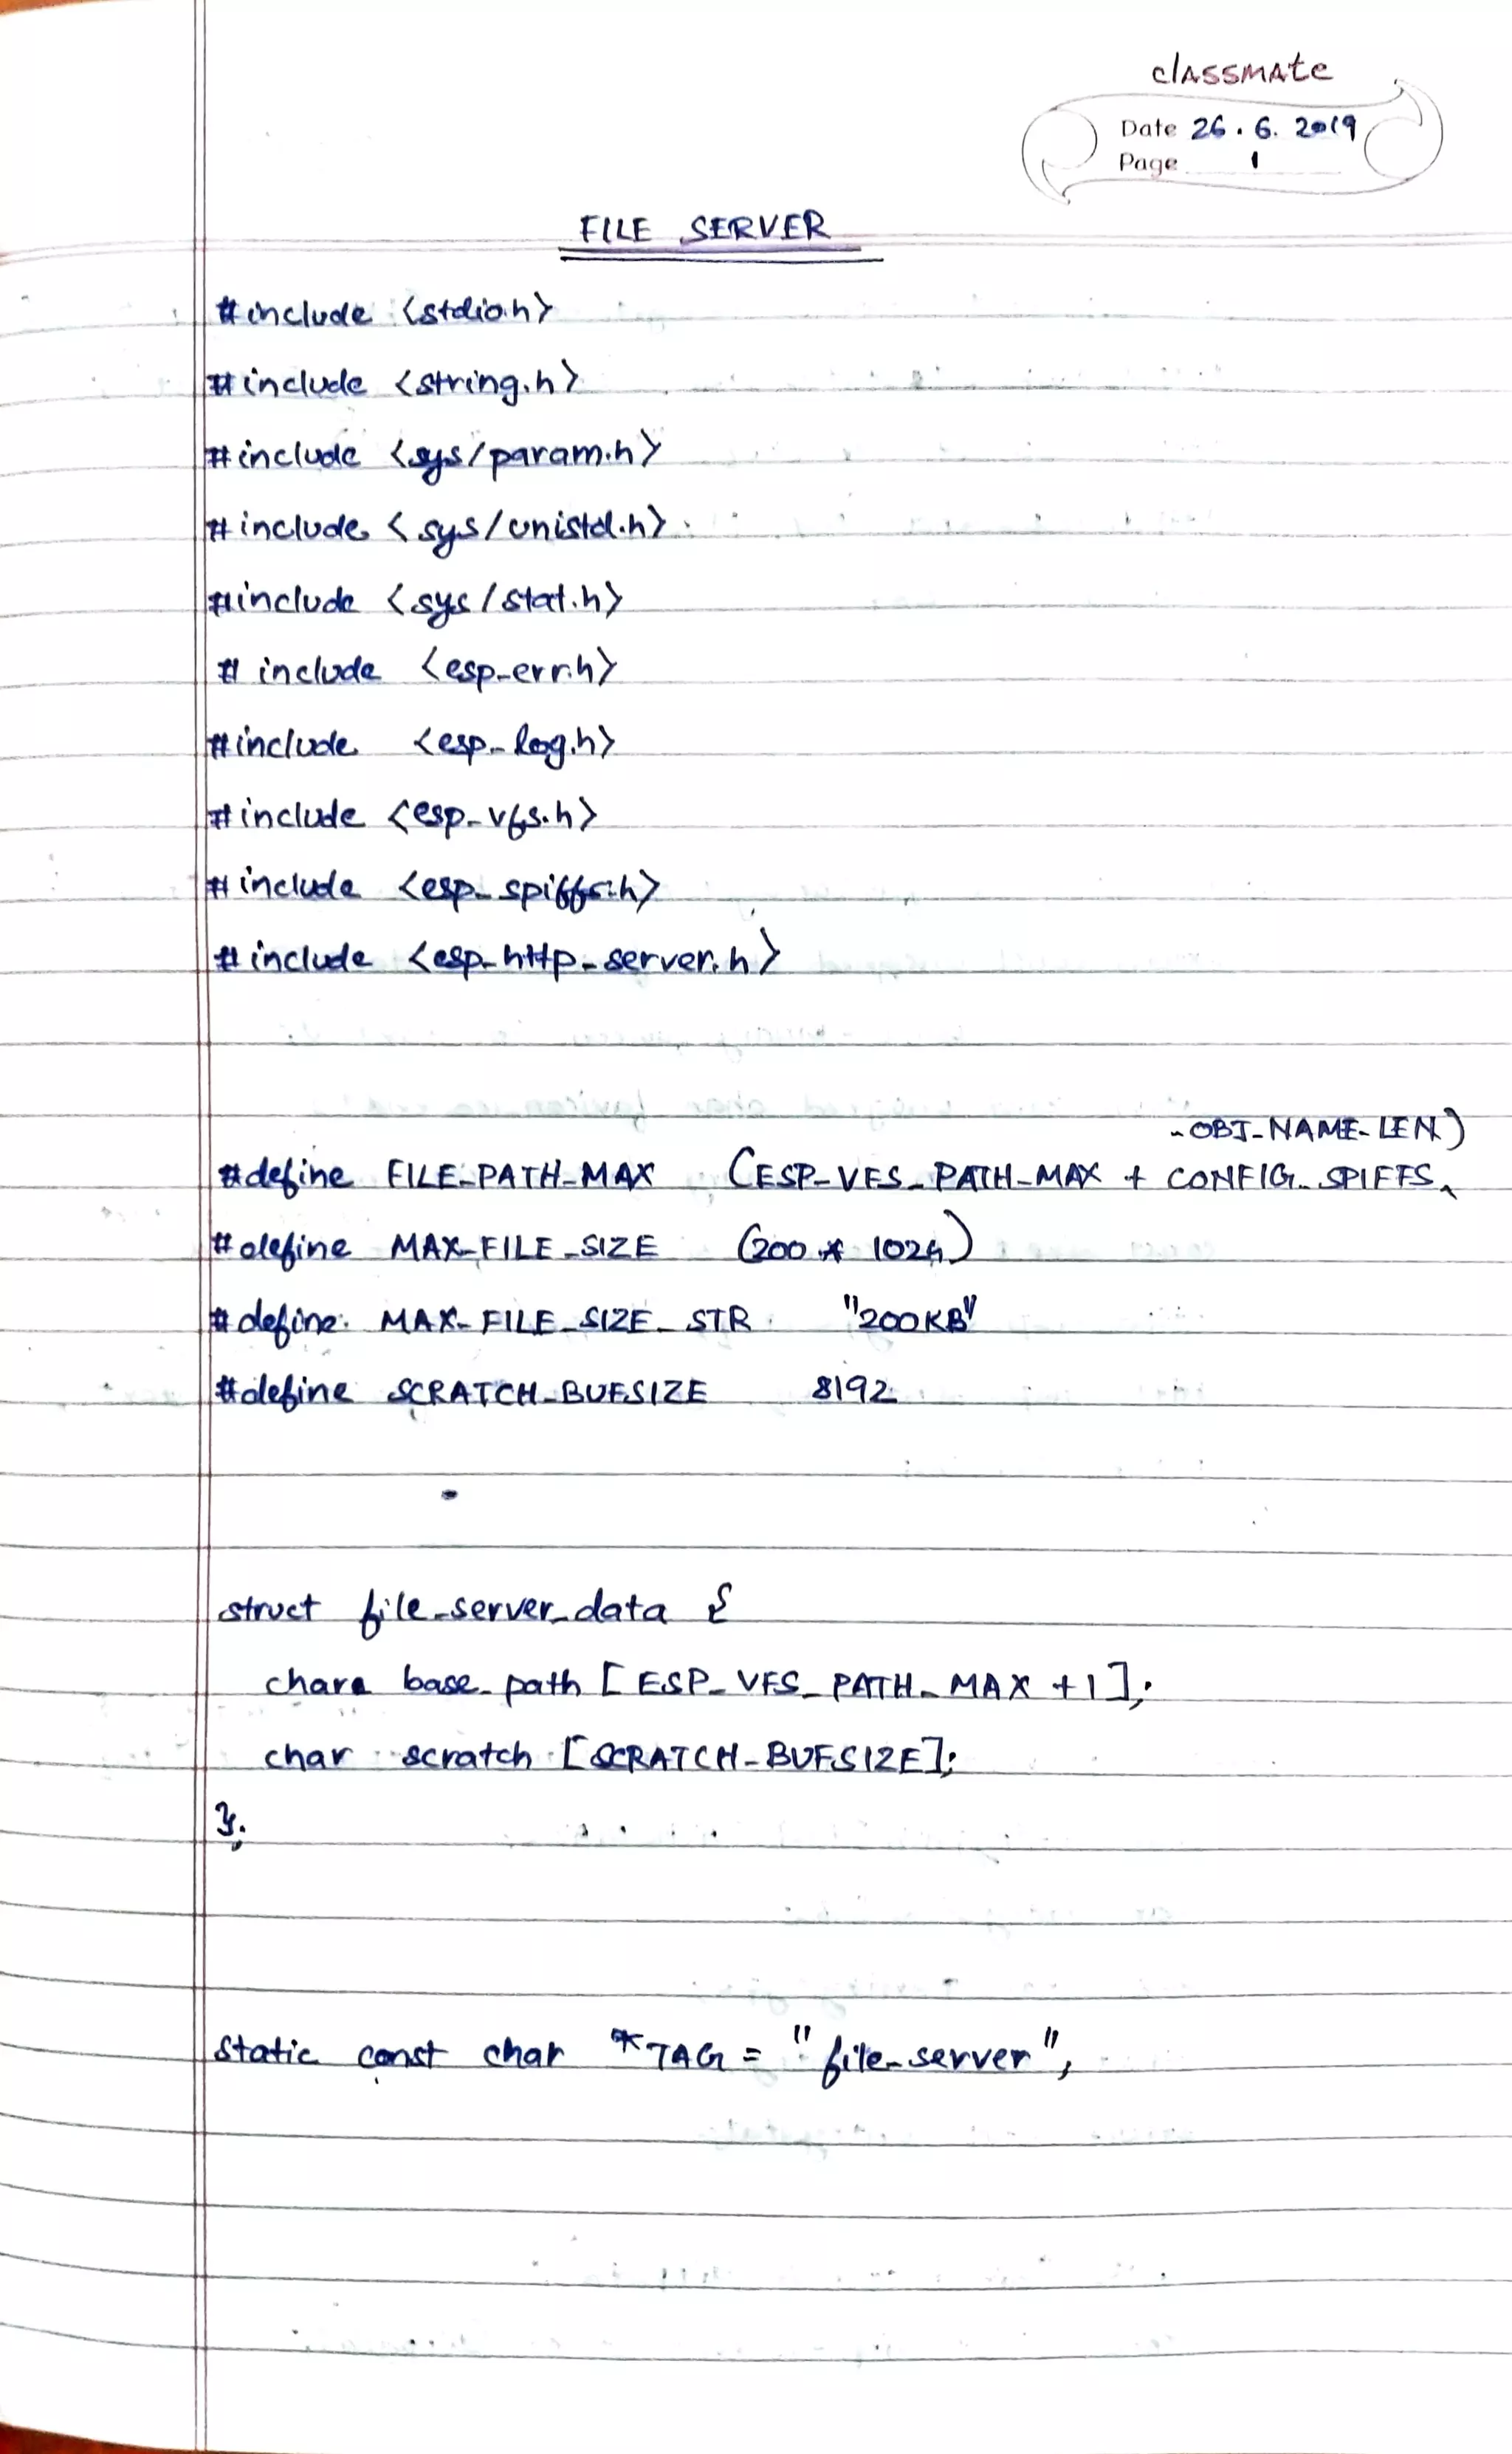 classmate
Date 26.6.2019
Page 1
FILE SERVER
#include <stdio.h>
#include <string.h>
#include <sys/param.h>
#include <sys/unistd.h>
#include <sys/stat.h>
# include <esp_err.h>
#include <esp_log.h>
#include <esp_vfs.h>
#include <esp_spiffs.h>
#include <esp_http_server.h>
_OBJ_NAME_LEN)
#define FILE_PATH_MAX (ESP_VFS_PATH_MAX + CONFIG_SPIFFS
#define MAX_FILE_SIZE (200 * 1024)
#define MAX_FILE_SIZE_STR "200KB"
#define SCRATCH_BUFSIZE 8192
struct file_server_data {
char base_path [ESP_VFS_PATH_MAX +1];
char scratch [SCRATCH_BUFSIZE];
};
static const char *TAG = "file_server";